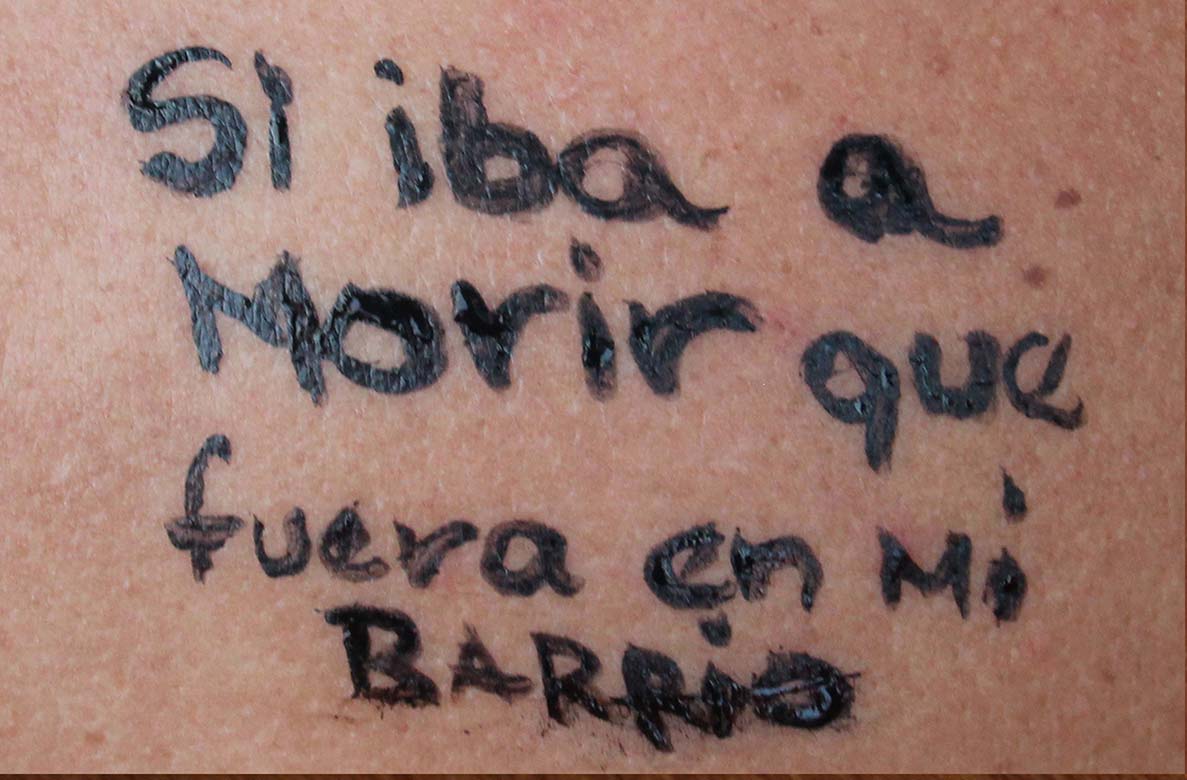 SI iba a
Morir que
fuera en Mi
BARRIO